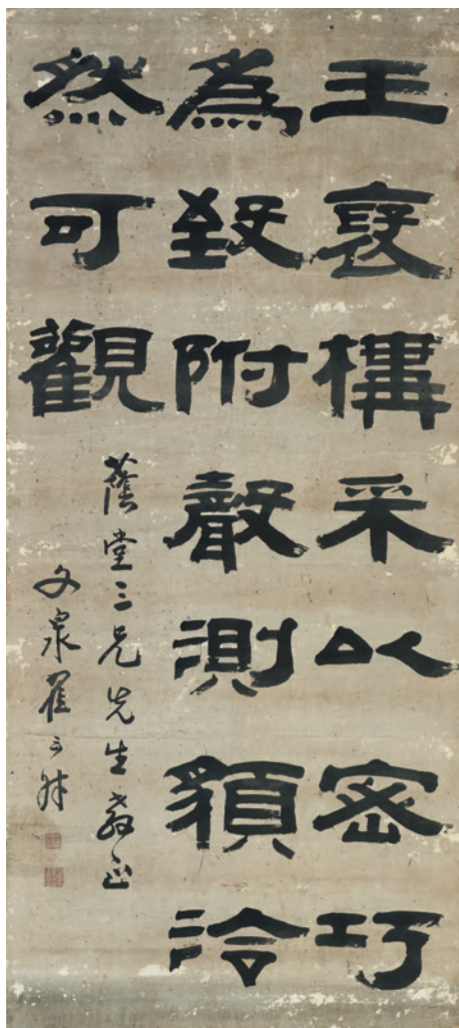 王襃構采以密巧
為致附聲測貌泠
然可觀
蔭堂三兄先生教正
文泉翟云升